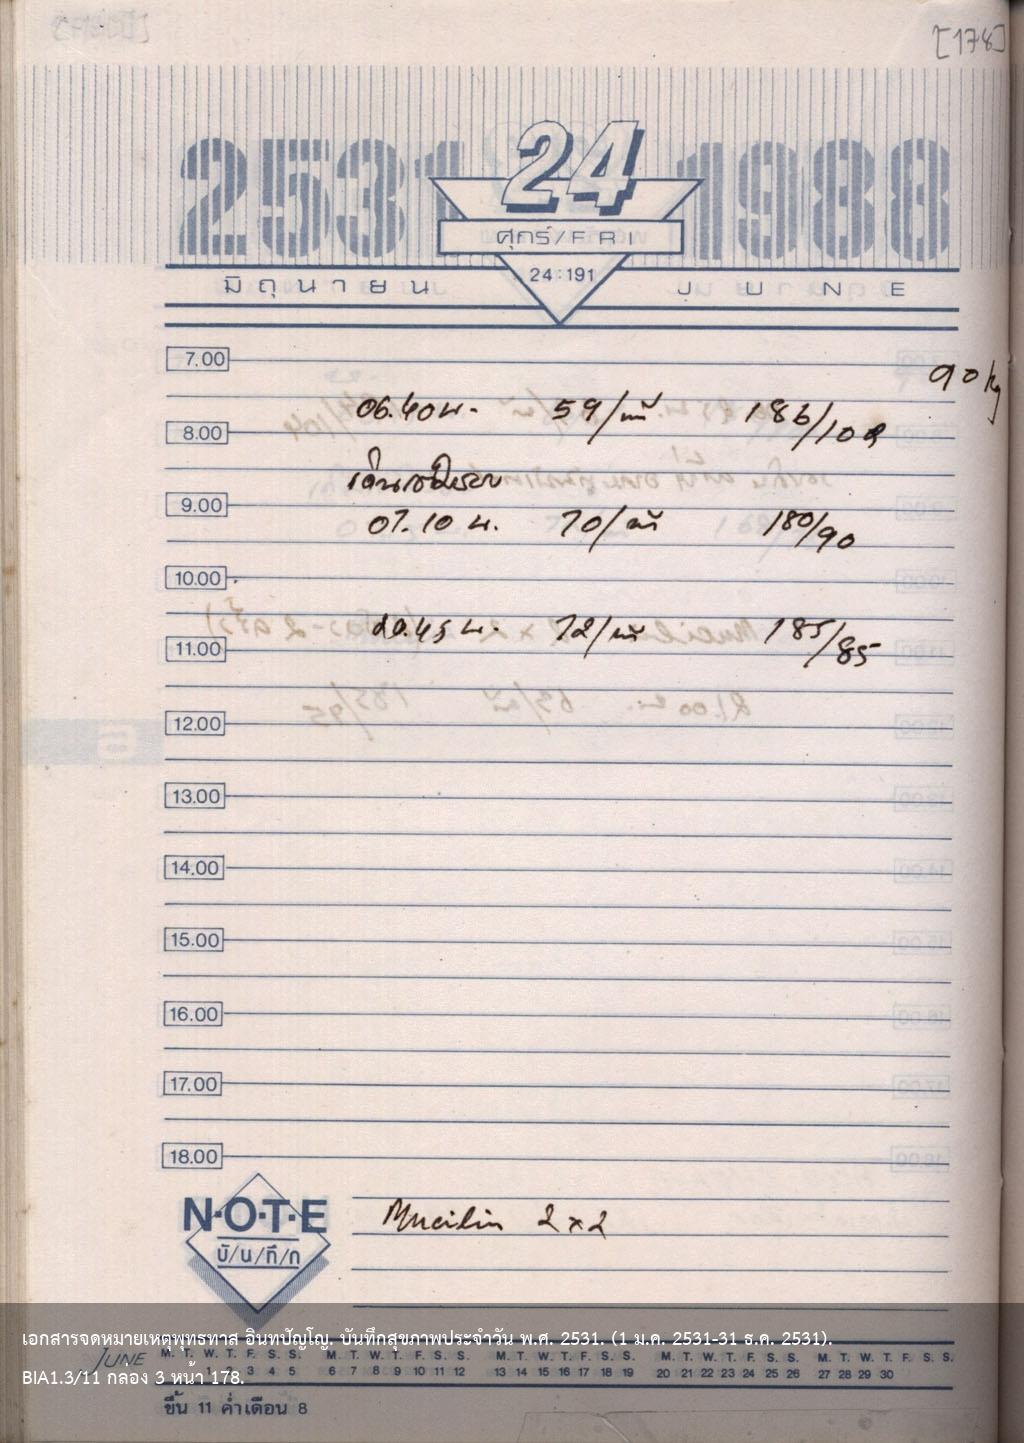 [178]
2531 24 1988
ศุกร์/FRI
24:191
มิถุนายน JUNE
7.00
90 kg
06.40 น. 59/นาที 186/102
8.00
9.00
07.10 น. 70/นาที 180/90
10.00
20.45 น. 72/นาที 185/85
11.00
12.00
13.00
14.00
15.00
16.00
17.00
18.00
N·O·T·E
บั/น/ทึ/ก
Mucilin 2 x 2
เอกสารจดหมายเหตุพุทธทาส อินทปัญโญ. บันทึกสุขภาพประจำวัน พ.ศ. 2531. (1 ม.ค. 2531-31 ธ.ค. 2531).
JUNE M. T. W. T. F. S. S. M. T. W. T. F. S. S. M. T. W. T. F. S. S. M. T. W. T. F. S. S. M. T. W. T. F. S. S.
1 2 3 4 5 6 7 8 9 10 11 12 13 14 15 16 17 18 19 20 21 22 23 24 25 26 27 28 29 30
BIA1.3/11 กล่อง 3 หน้า 178.
ขึ้น 11 ค่ำเดือน 8